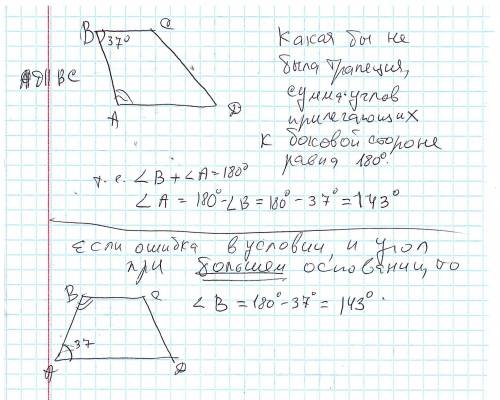 B C
37°
A D
AD || BC
Какая бы не
была трапеция,
сумма углов
прилегающих
к боковой стороне
равна 180°.
т.е. ∠B + ∠A = 180°
∠A = 180° - ∠B = 180° - 37° = 143°
Если ошибка в условии, и угол
при большем основании, то
B C
∠B = 180° - 37° = 143°.
37
A D